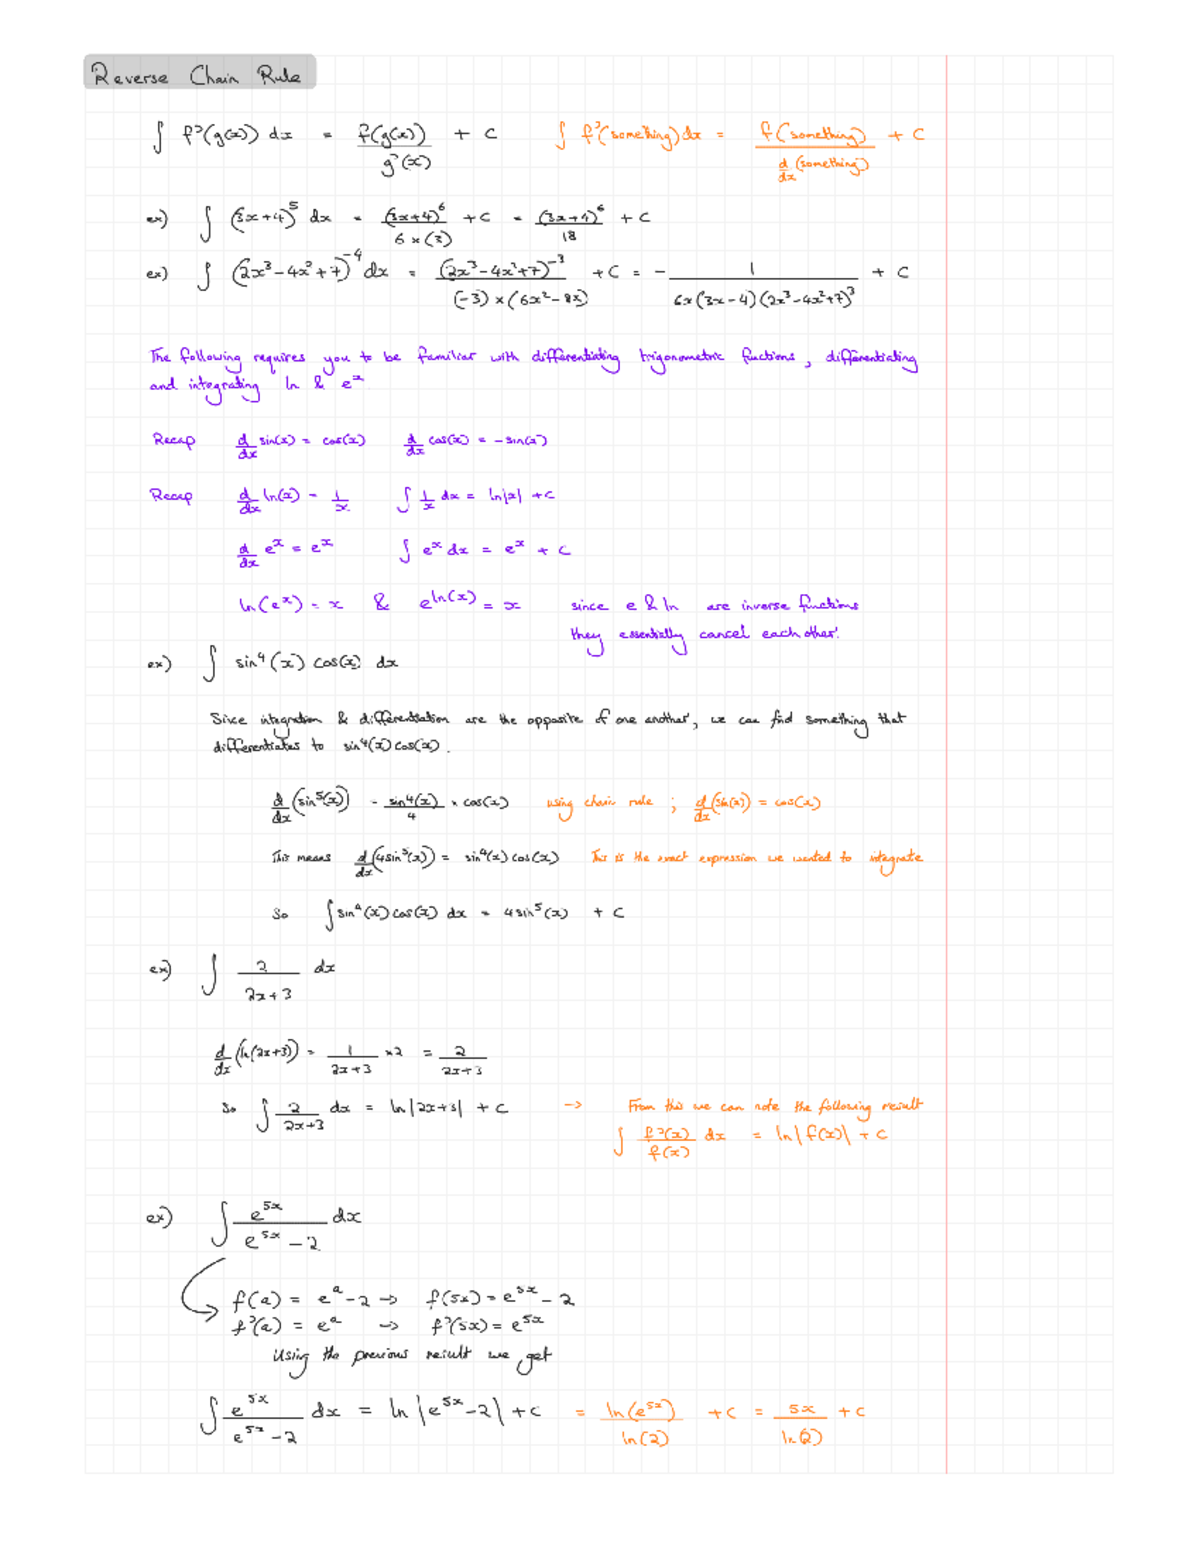 Reverse Chain Rule
∫ f'(g(x)) dx = f(g(x))/g'(x) + C    ∫ f'(something) dx = f(something)/(d/dx (something)) + C
ex) ∫ (3x+4)^5 dx = (3x+4)^6/(6×(3)) + C = (3x+4)^6/18 + C
ex) ∫ (2x³-4x²+7)^-4 dx = (2x³-4x²+7)^-3/((-3)×(6x²-8x)) + C = - 1/(6x(3x-4)(2x³-4x²+7)³) + C
The following requires you to be familiar with differentiating trigonometric fuctions, differentiating
and integrating ln & e^x
Recap d/dx sin(x) = cos(x)    d/dx cos(x) = -sin(x)
Recap d/dx ln(x) = 1/x    ∫ 1/x dx = ln|x| + C
d/dx e^x = e^x    ∫ e^x dx = e^x + C
ln(e^x) = x & e^ln(x) = x    since e & ln are inverse fuctions
they essentially cancel each other.
ex) ∫ sin⁴(x) cos(x) dx
Since integration & differentiation are the opposite of one another, we can find something that
differentiates to sin⁴(x)cos(x).
d/dx (sin⁵(x)) = sin⁴(x)/4 × cos(x)    using chain rule ; d/dx (sin(x)) = cos(x)
This means d/dx (4sin⁵(x)) = sin⁴(x)cos(x)    This is the exact expression we wanted to integrate
So ∫ sin⁴(x)cos(x) dx = 4sin⁵(x) + C
ex) ∫ 2/(2x+3) dx
d/dx (ln(2x+3)) = 1/(2x+3) ×2 = 2/(2x+3)
So ∫ 2/(2x+3) dx = ln|2x+3| + C    → From this we can note the following result
∫ f'(x)/f(x) dx = ln|f(x)| + C
ex) ∫ e^5x/(e^5x - 2) dx
f(a) = e^a - 2 → f(5x) = e^5x - 2
f'(a) = e^a → f'(5x) = e^5x
Using the previous result we get
∫ e^5x/(e^5x - 2) dx = ln|e^5x - 2| + C = ln(e^5x)/ln(2) + C = 5x/ln(2) + C